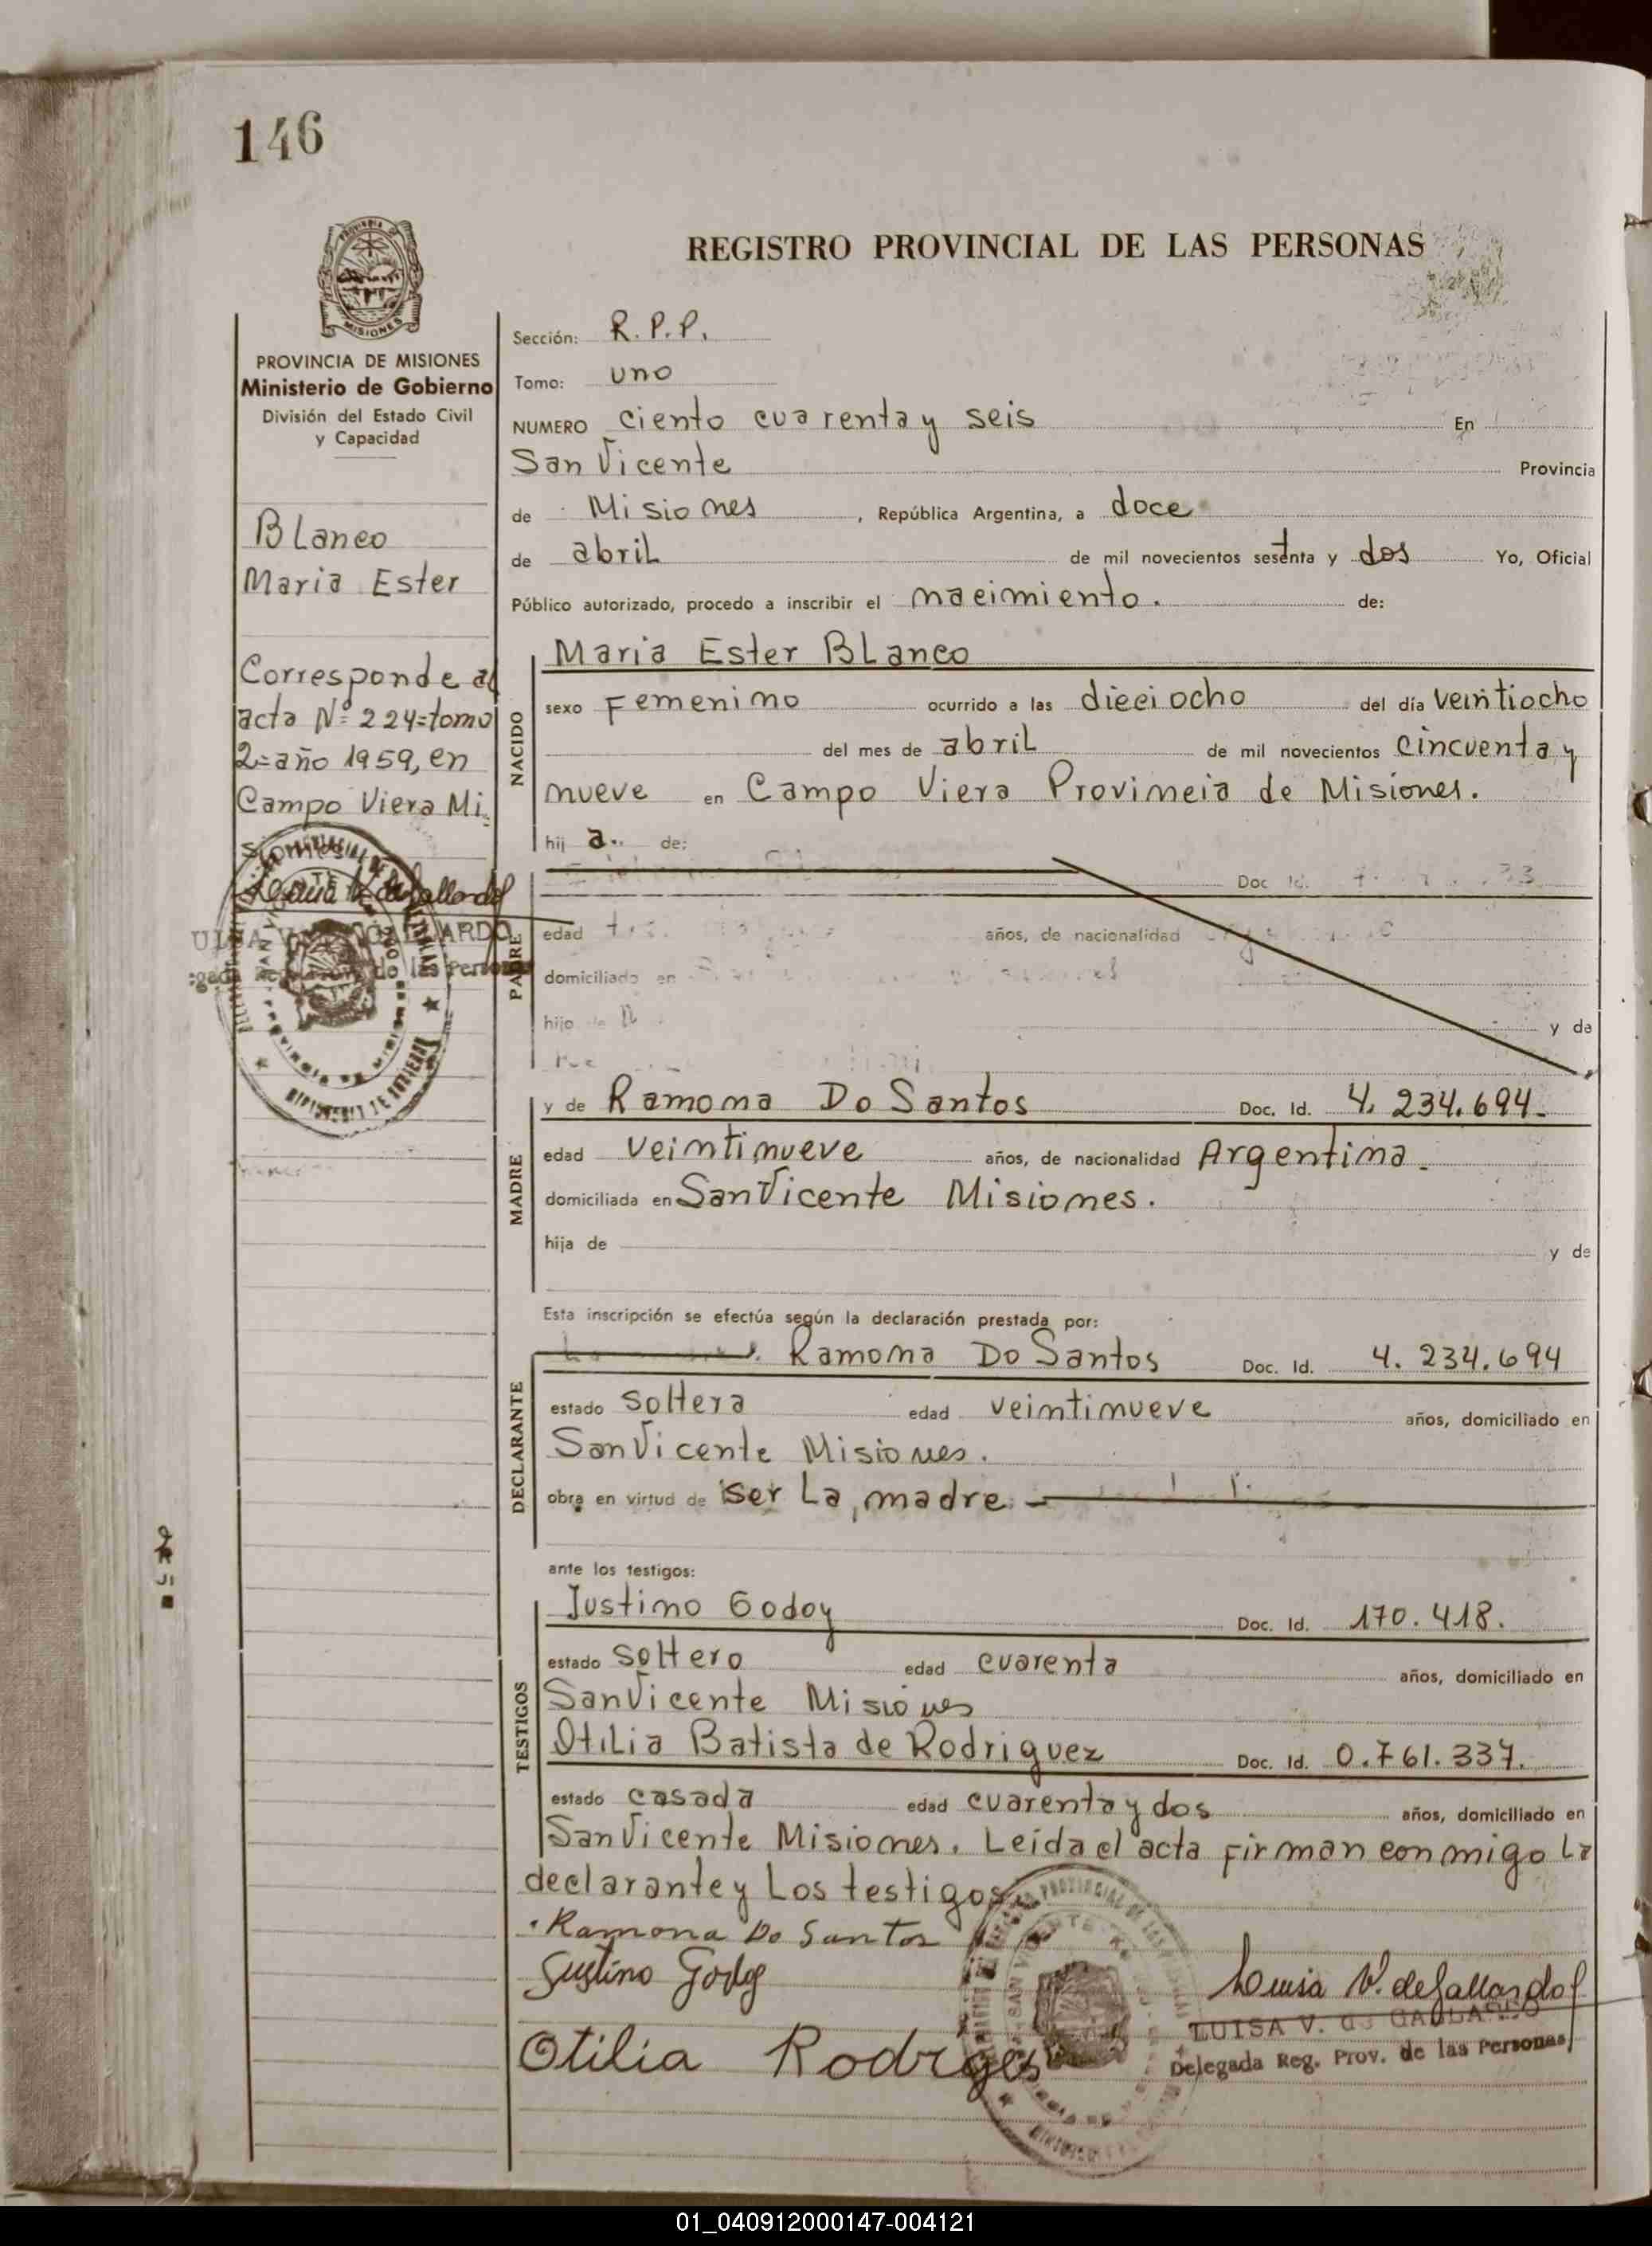 146
REGISTRO PROVINCIAL DE LAS PERSONAS
MISIONES
PROVINCIA DE MISIONES
Ministerio de Gobierno
División del Estado Civil
y Capacidad
Blanco
Maria Ester
Corresponde al
acta Nº 224=tomo
2=año 1959, en
Campo Viera Mi
siones
Sección: R.P.P.
Tomo: uno
NUMERO ciento cuarenta y seis En
San Vicente Provincia
de Misiones, República Argentina, a doce
de abril de mil novecientos setenta y dos Yo, Oficial
Público autorizado, procedo a inscribir el nacimiento. de:
NACIDO
Maria Ester Blanco
sexo Femenino ocurrido a las dieciocho del día veintiocho
del mes de abril de mil novecientos cincuenta y
nueve en Campo Viera Provincia de Misiones.
hij a de:
PADRE
Doc. Id.
edad años, de nacionalidad
domiciliado en
hijo de y de
MADRE
y de Ramona Do Santos Doc. Id. 4.234.694.
edad veintinueve años, de nacionalidad Argentina.
domiciliada en San Vicente Misiones.
hija de y de
Esta inscripción se efectúa según la declaración prestada por:
DECLARANTE
Ramona Do Santos Doc. Id. 4.234.694
estado soltera edad veintinueve años, domiciliado en
San Vicente Misiones.
obra en virtud de ser la madre.
ante los testigos:
TESTIGOS
Justino Godoy Doc. Id. 170.418.
estado soltero edad cuarenta años, domiciliado en
San Vicente Misiones
Otilia Batista de Rodriguez Doc. Id. 0.761.337.
estado casada edad cuarenta y dos años, domiciliado en
San Vicente Misiones. Leída el acta firman conmigo la
declarante y los testigos.
Ramona Do Santos
Justino Godoy
Otilia Rodrges
Luisa V. de Gallardo
LUISA V. de GALLARDO
Delegada Reg. Prov. de las Personas
01_040912000147-004121